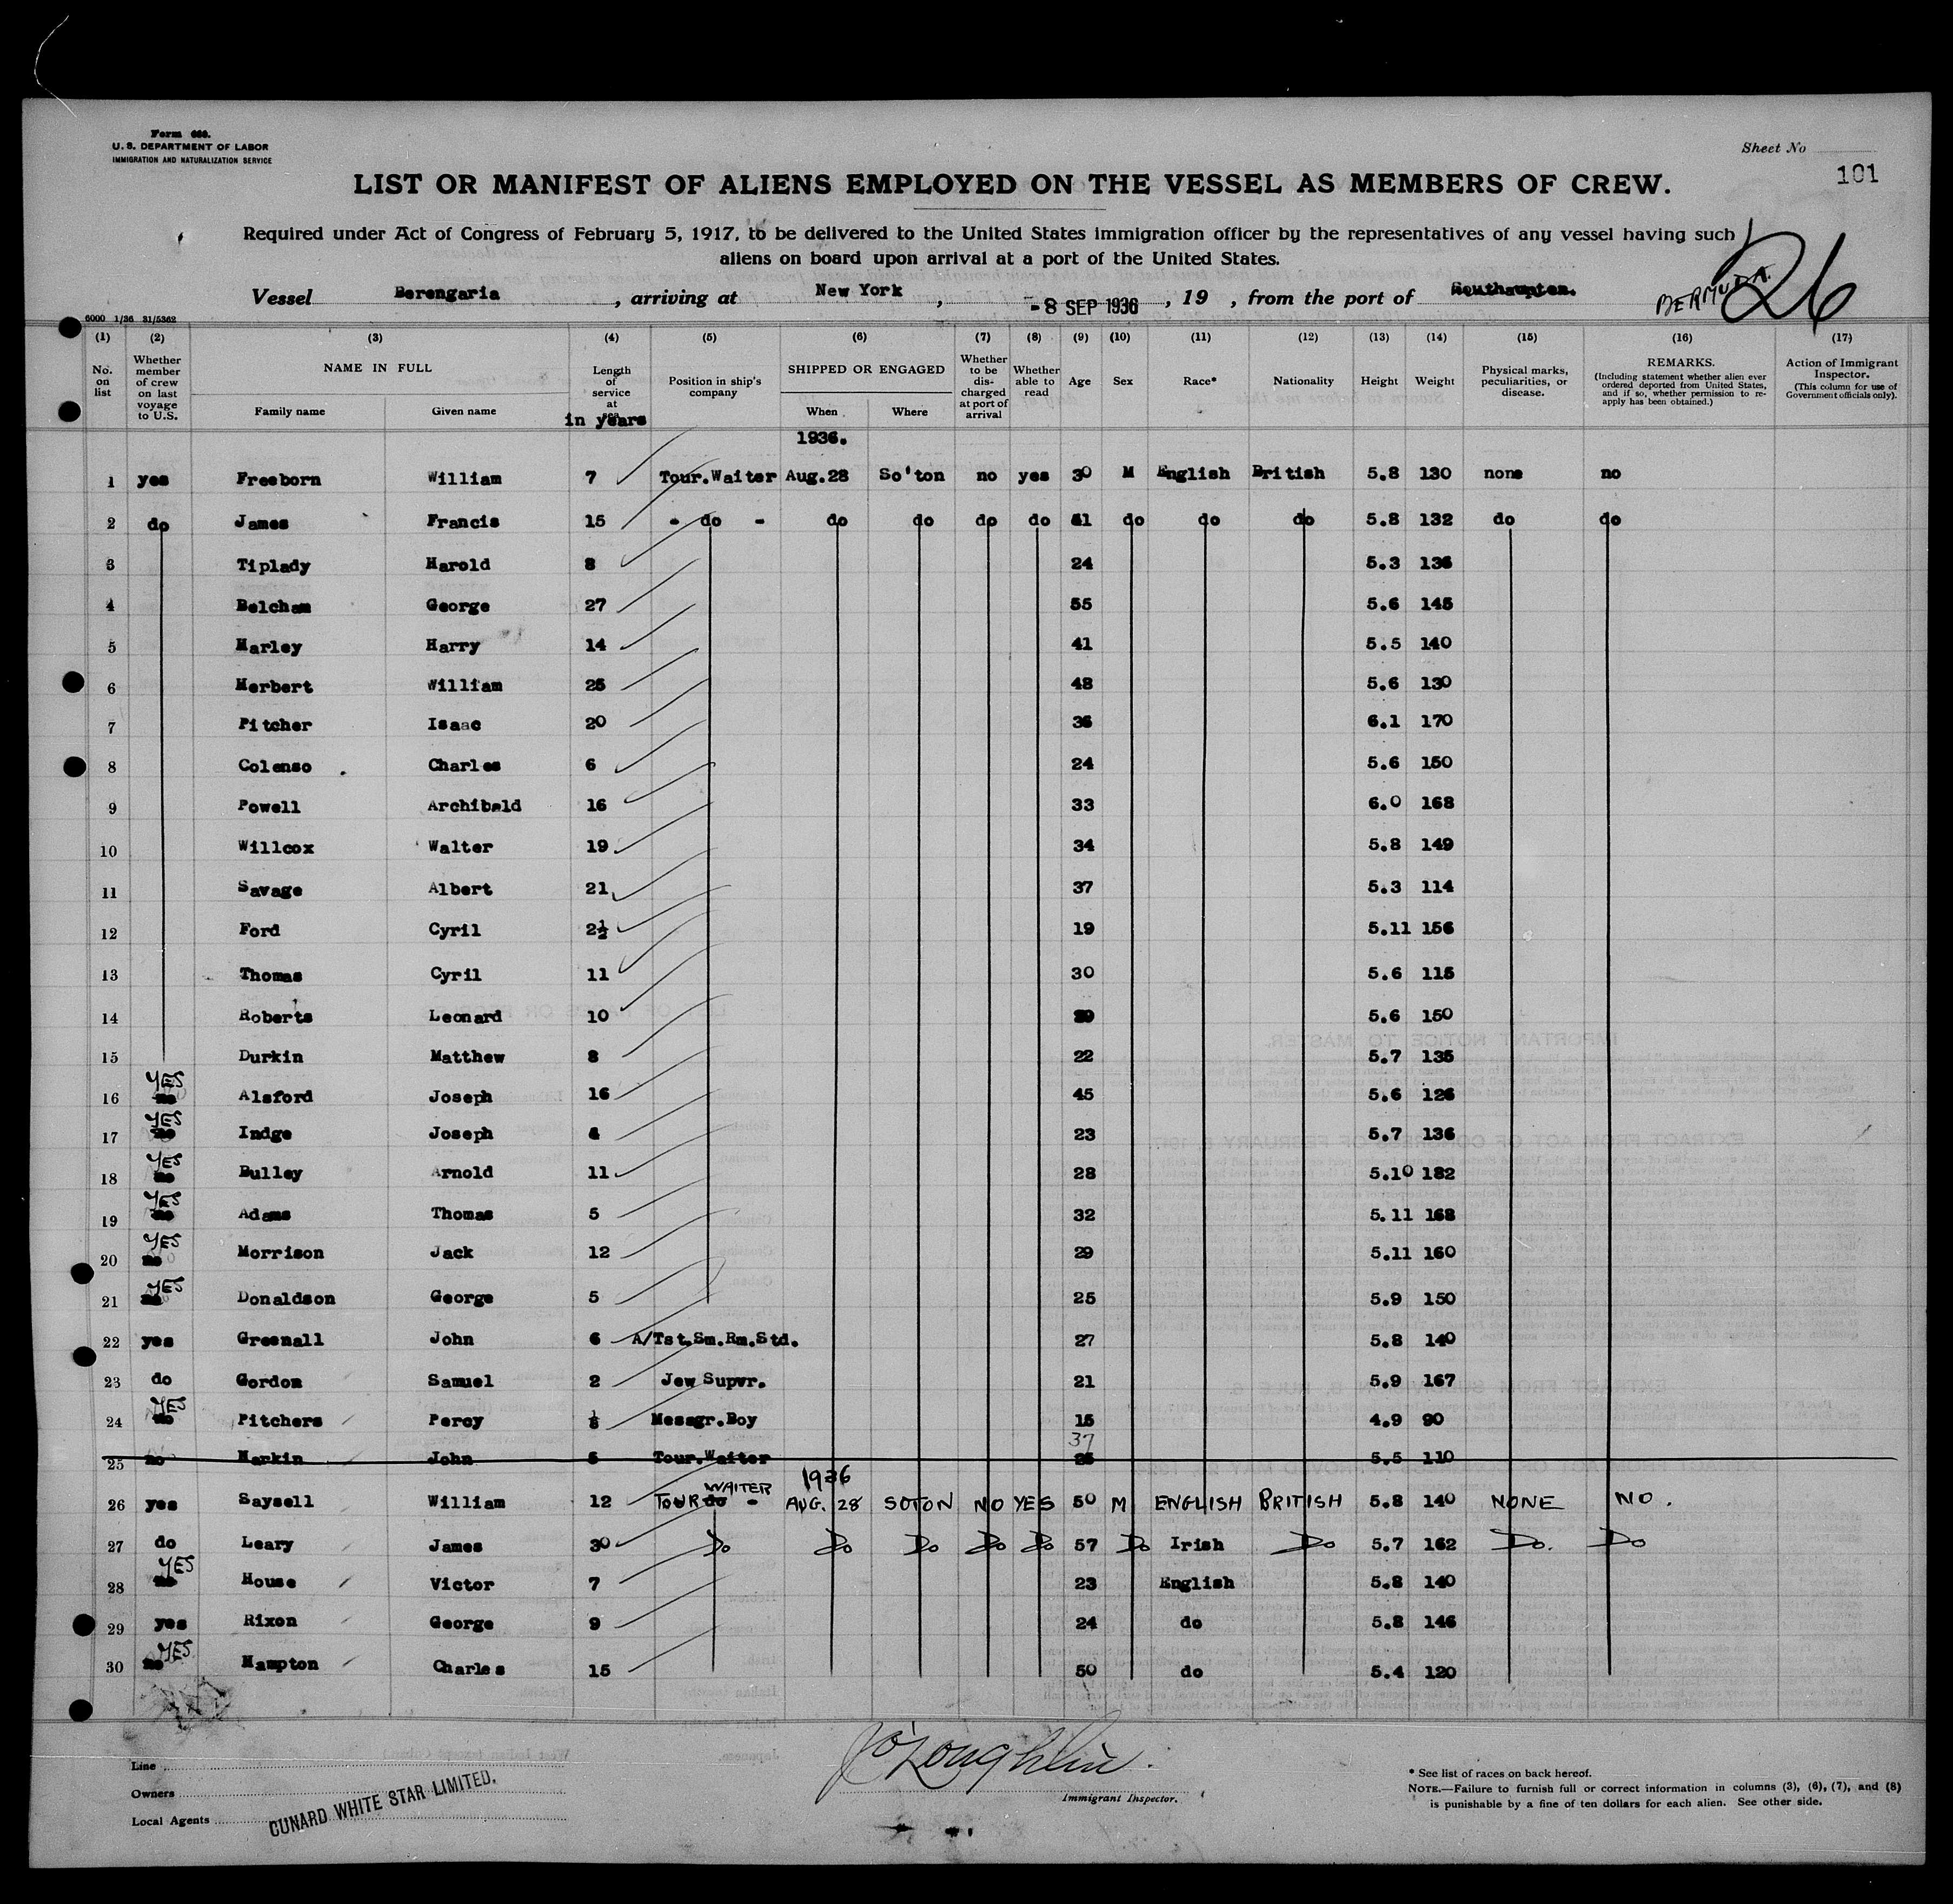 Form 680.
U. S. DEPARTMENT OF LABOR
IMMIGRATION AND NATURALIZATION SERVICE
Sheet No
101
LIST OR MANIFEST OF ALIENS EMPLOYED ON THE VESSEL AS MEMBERS OF CREW.
Required under Act of Congress of February 5, 1917, to be delivered to the United States immigration officer by the representatives of any vessel having such
aliens on board upon arrival at a port of the United States.
26
Vessel Berengaria, arriving at New York, - 8 SEP 1936, 19 , from the port of Southampton. BERMUDA.
6000 1/36 31/5362
(1) (2) (3) (4) (5) (6) (7) (8) (9) (10) (11) (12) (13) (14) (15) (16) (17)
No. on list
Whether member of crew on last voyage to U.S.
NAME IN FULL
Family name
Given name
Length of service at sea in years
Position in ship's company
SHIPPED OR ENGAGED
When
Where
Whether to be discharged at port of arrival
Whether able to read
Age
Sex
Race*
Nationality
Height
Weight
Physical marks, peculiarities, or disease.
REMARKS.
(Including statement whether alien ever ordered deported from United States, and if so, whether permission to re-apply has been obtained.)
Action of Immigrant Inspector.
(This column for use of Government officials only).
1936.
1 yes Freeborn William 7 Tour.Waiter Aug.28 So'ton no yes 30 M English British 5.8 130 none no
2 do James Francis 15 - do - do do do do 41 do do do 5.8 132 do do
3 Tiplady Harold 8 24 5.3 136
4 Belcham George 27 55 5.6 145
5 Marley Harry 14 41 5.5 140
6 Herbert William 25 48 5.6 130
7 Pitcher Isaac 20 36 6.1 170
8 Colenso Charles 6 24 5.6 150
9 Powell Archibald 16 33 6.0 168
10 Willcox Walter 19 34 5.8 149
11 Savage Albert 21 37 5.3 114
12 Ford Cyril 2½ 19 5.11 156
13 Thomas Cyril 11 30 5.6 115
14 Roberts Leonard 10 5.6 150
15 Durkin Matthew 8 22 5.7 135
16 no YES Alsford Joseph 16 45 5.6 126
17 no YES Indge Joseph 4 23 5.7 136
18 no YES Bulley Arnold 11 28 5.10 182
19 no YES Adams Thomas 5 32 5.11 168
20 no YES Morrison Jack 12 29 5.11 160
21 no YES Donaldson George 5 25 5.9 150
22 yes Greenall John 6 A/Tst.Sm.Rm.Std. 27 5.8 140
23 do Gordon Samuel 2 Jew Supvr. 21 5.9 167
24 no YES Pitchers Percy Messgr.Boy 15 4.9 90
25 no Harkin John 5 Tour.Waiter 37 5.5 110
1936
26 yes Saysell William 12 TOUR do - WAITER AUG. 28 SOTON NO YES 50 M ENGLISH BRITISH 5.8 140 NONE NO.
27 do Leary James 30 Do Do Do Do Do 57 Do Irish Do 5.7 162 Do. Do
28 no YES House Victor 7 23 English 5.8 140
29 yes Rixon George 9 24 do 5.8 146
30 no YES Hampton Charles 15 50 do 5.4 120
Line
Owners
Local Agents
CUNARD WHITE STAR LIMITED.
J O'Loughlin.
Immigrant Inspector.
* See list of races on back hereof.
NOTE.—Failure to furnish full or correct information in columns (3), (6), (7), and (8)
is punishable by a fine of ten dollars for each alien. See other side.